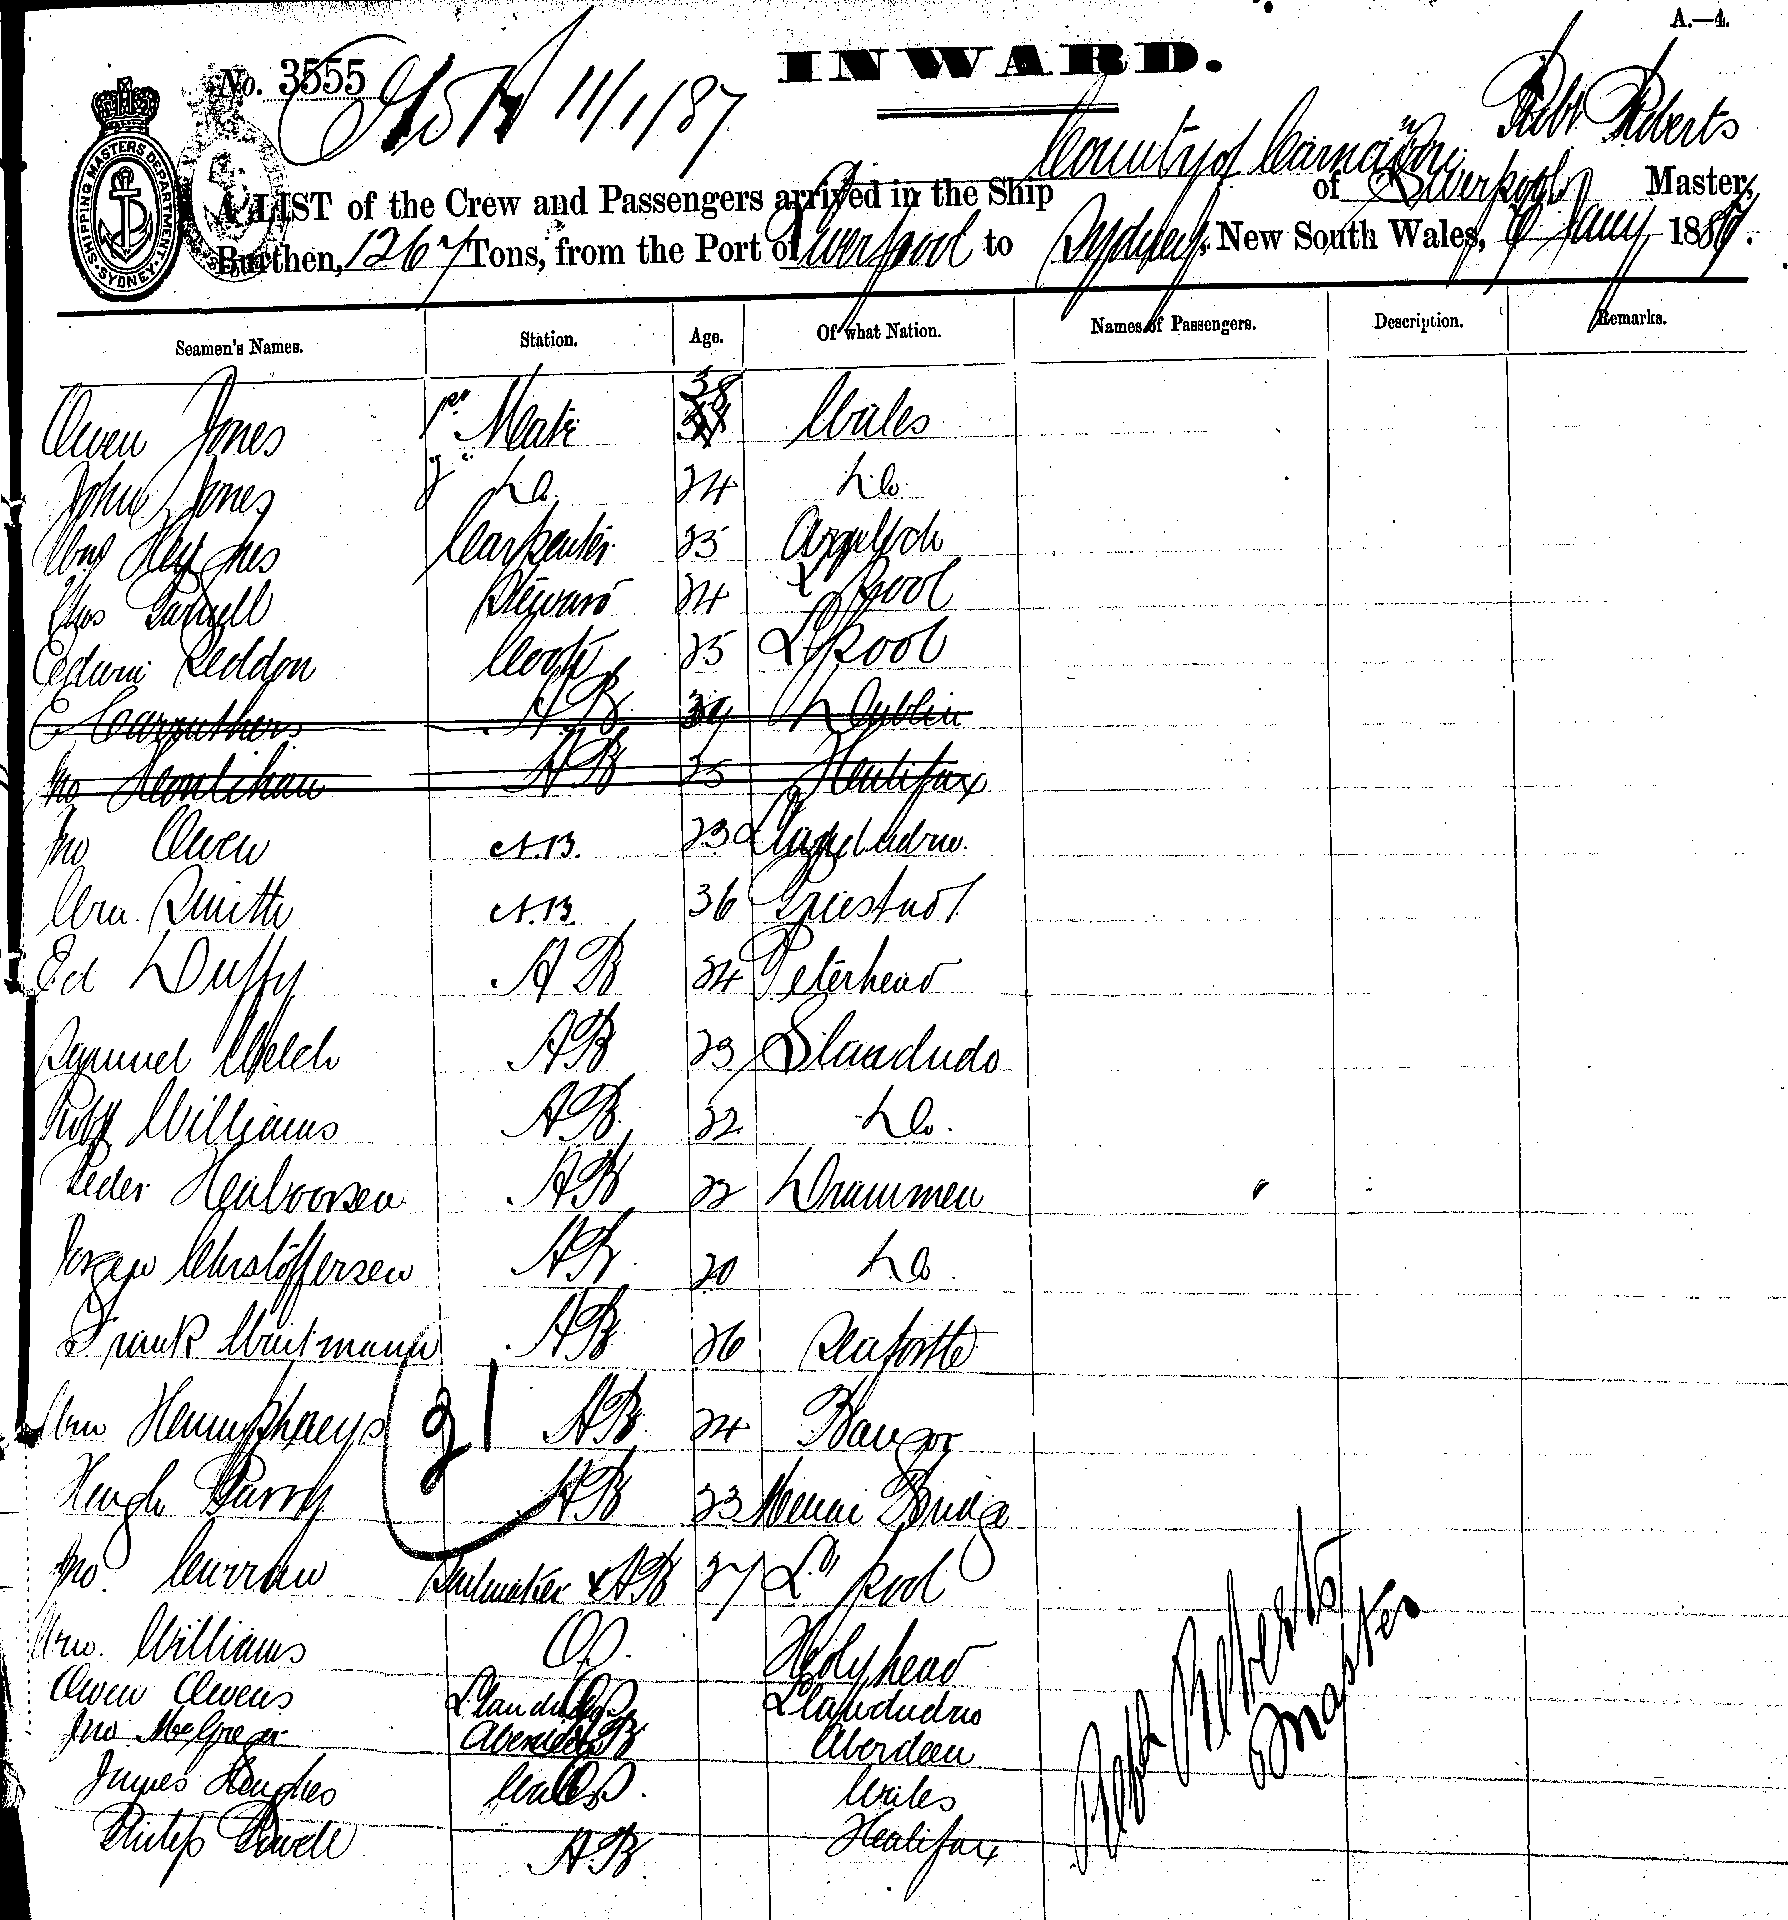 A.—4.
INWARD.
No. 3555
11/1/87
SHIPPING MASTERS DEPARTMENT
SYDNEY
Robt Roberts
A LIST of the Crew and Passengers arrived in the Ship County of Carnarvon of Liverpool Master,
Burthen, 1267 Tons, from the Port of Liverpool to Sydney, New South Wales, Jany 1887.
Seamen's Names. Station. Age. Of what Nation. Names of Passengers. Description. Remarks.
Owen Jones 1st Mate 38 Wales
John Jones 2 Do. 24 Do.
Carpenter 25
Steward 24 L'pool
Edwin Seddon Cook 25 L'pool
E Carruthers A B Dublin
Jno Hontihan A B 25 Halifax
Jno Owen A.B. 23 Llandudno.
Wm. Smith A.B. 36
Ed Duffy A B 24 Peterhead
Samuel Welch AB 23 Llandudo
Robt Williams AB 22 Do.
Peder Halvorsen AB 22 Drammen
Christoffersen AB 20 Do.
Frank AB 26 Seaforth
Wm Humphreys AB 24 Bangor
21
Hugh Parry AB 23 Menai Bridge
Jno. Curran Sailmaker & AB 27 L'pool
Wm. Williams OS. Holyhead
Owen Owens Llandudno
Jno McGregor Aberdeen
James Hughes Wales
Philip Powell A.B. Halifax
Robt Roberts
Master